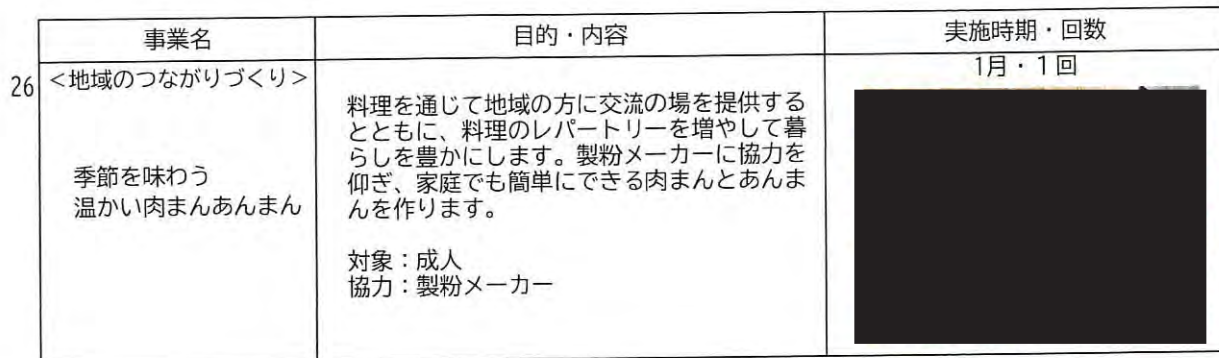 事業名
目的・内容
実施時期・回数
26
<地域のつながりづくり>
季節を味わう
温かい肉まんあんまん
料理を通じて地域の方に交流の場を提供する
とともに、料理のレパートリーを増やして暮
らしを豊かにします。製粉メーカーに協力を
仰ぎ、家庭でも簡単にできる肉まんとあんま
んを作ります。
対象：成人
協力：製粉メーカー
1月・1回